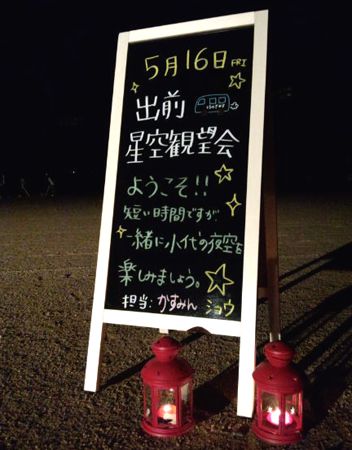 5月16日 FRI
出前
星空観望会
ようこそ!!
短い時間ですが
一緒に小代の夜空を
楽しみましょう。
担当:かすみん ショウ